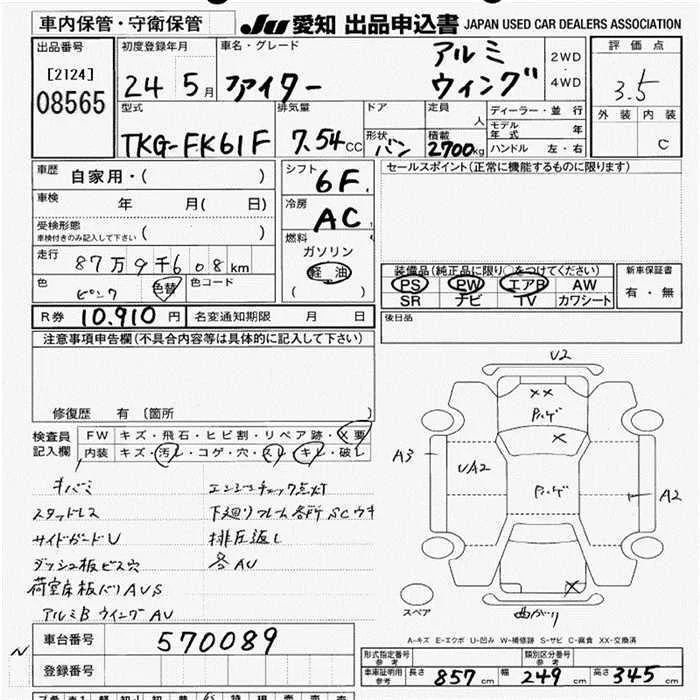 車内保管・守衛保管
JU 愛知 出品申込書 JAPAN USED CAR DEALERS ASSOCIATION
出品番号
[2124]
08565
初度登録年月
24 5月
車名・グレード
ファイター
アルミ
ウィング
2WD
・
4WD
評価点
3.5
外装 内装
C
型式
TKG-FK61F
排気量
7.54cc
ドア
形状 バン
定員 人
積載 2700kg
ディーラー・並行
モデル年式 年
ハンドル 左・右
車歴 自家用・( )
車検 年 月( 日)
受検形態
車検付きのみ記入して下さい ( )
走行 87万9千608km
色 ピンク 色替 色コード
シフト 6F
冷房 AC
燃料
ガソリン
軽油
( )
セールスポイント(正常に機能するものに限ります)
装備品(純正品に限り○をつけてください)
PS PW エアB AW
SR ナビ TV カワシート
新車保証書
有・無
R券 10.910円 名変通知期限 月 日
後日品
注意事項申告欄(不具合内容等は具体的に記入して下さい)
修復歴 有 〔箇所 〕
検査員
記入欄
FW キズ・飛石・ヒビ割・リペア跡・X要
内装 キズ・汚レ・コゲ・穴・スレ・キレ・破レ
キバミ
スタッドレス
サイドガードU
ダッシュ板ビス穴
荷室床板バリAUS
アルミB ウイングAU
エンジンチェック点灯
下廻りフレーム各所SCウキ
排圧返し
各AU
U2
XX
X
A3
UA2
A2
X
曲がり
スペア
A-キズ E-エクボ U-凹み W-補修跡 S-サビ C-腐食 XX-交換済
N
車台番号 570089
登録番号
形式指定番号
参考
類別区分番号
参考
車庫証明用
参考
長さ 857cm 幅 249cm 高さ 345cm